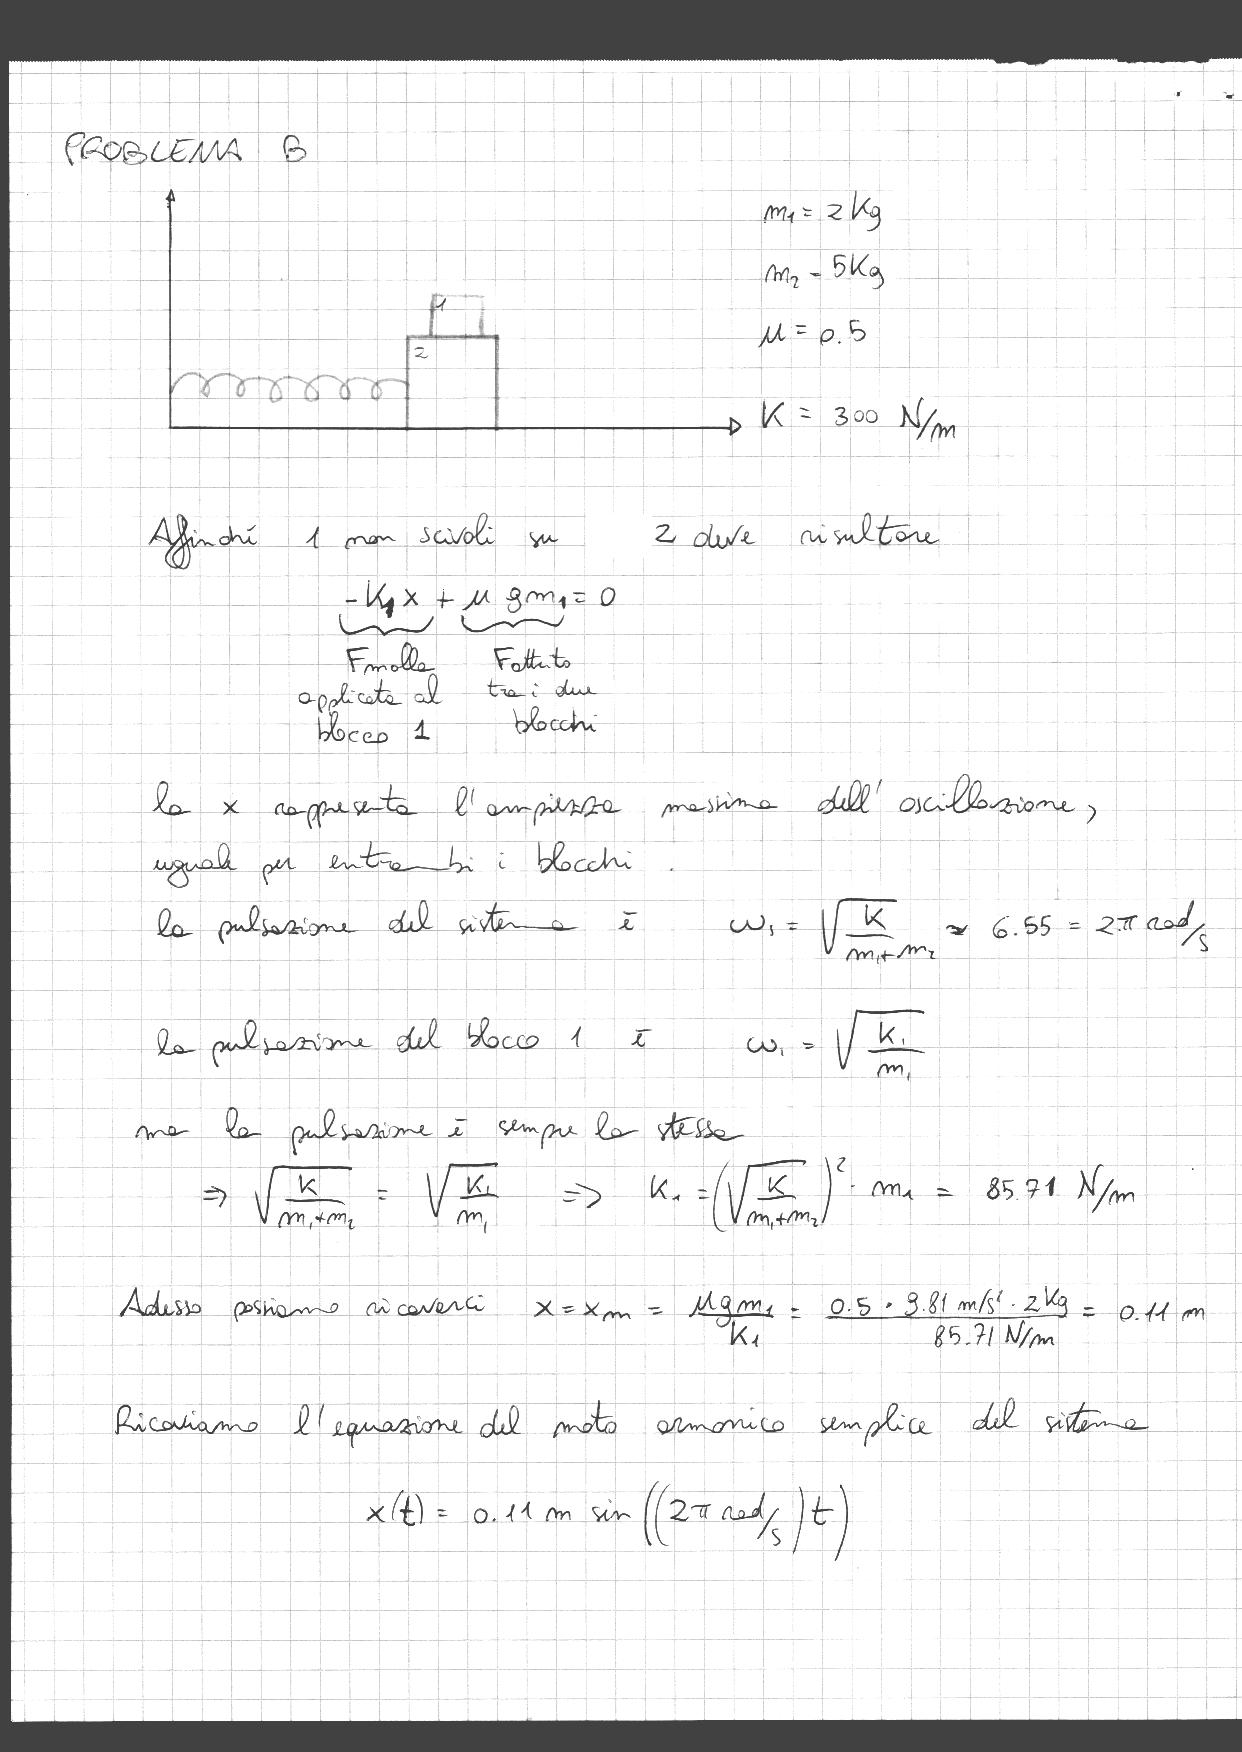 PROBLEMA B
m₁ = 2 Kg
m₂ = 5 Kg
μ = 0.5
K = 300 N/m
1
2
Affinché 1 non scivoli su 2 deve risultare
-K₁x + μ g m₁ = 0
Fmolla Fattrito
applicata al tra i due
blocco 1 blocchi
la x rappresenta l'ampiezza massima dell'oscillazione,
uguale per entrambi i blocchi.
la pulsazione del sistema è ω₁ = √(K/(m₁+m₂)) ≈ 6.55 = 2π rad/s
la pulsazione del blocco 1 è ω₁ = √(K₁/m₁)
ma la pulsazione è sempre la stessa
⇒ √(K/(m₁+m₂)) = √(K₁/m₁) ⇒ K₁ = (√(K/(m₁+m₂)))² · m₁ = 85.71 N/m
Adesso possiamo ricavarci x = xₘ = μgm₁/K₁ = (0.5 · 9.81 m/s² · 2Kg)/(85.71 N/m) = 0.11 m
Ricaviamo l'equazione del moto armonico semplice del sistema
x(t) = 0.11 m sin((2π rad/s)t)